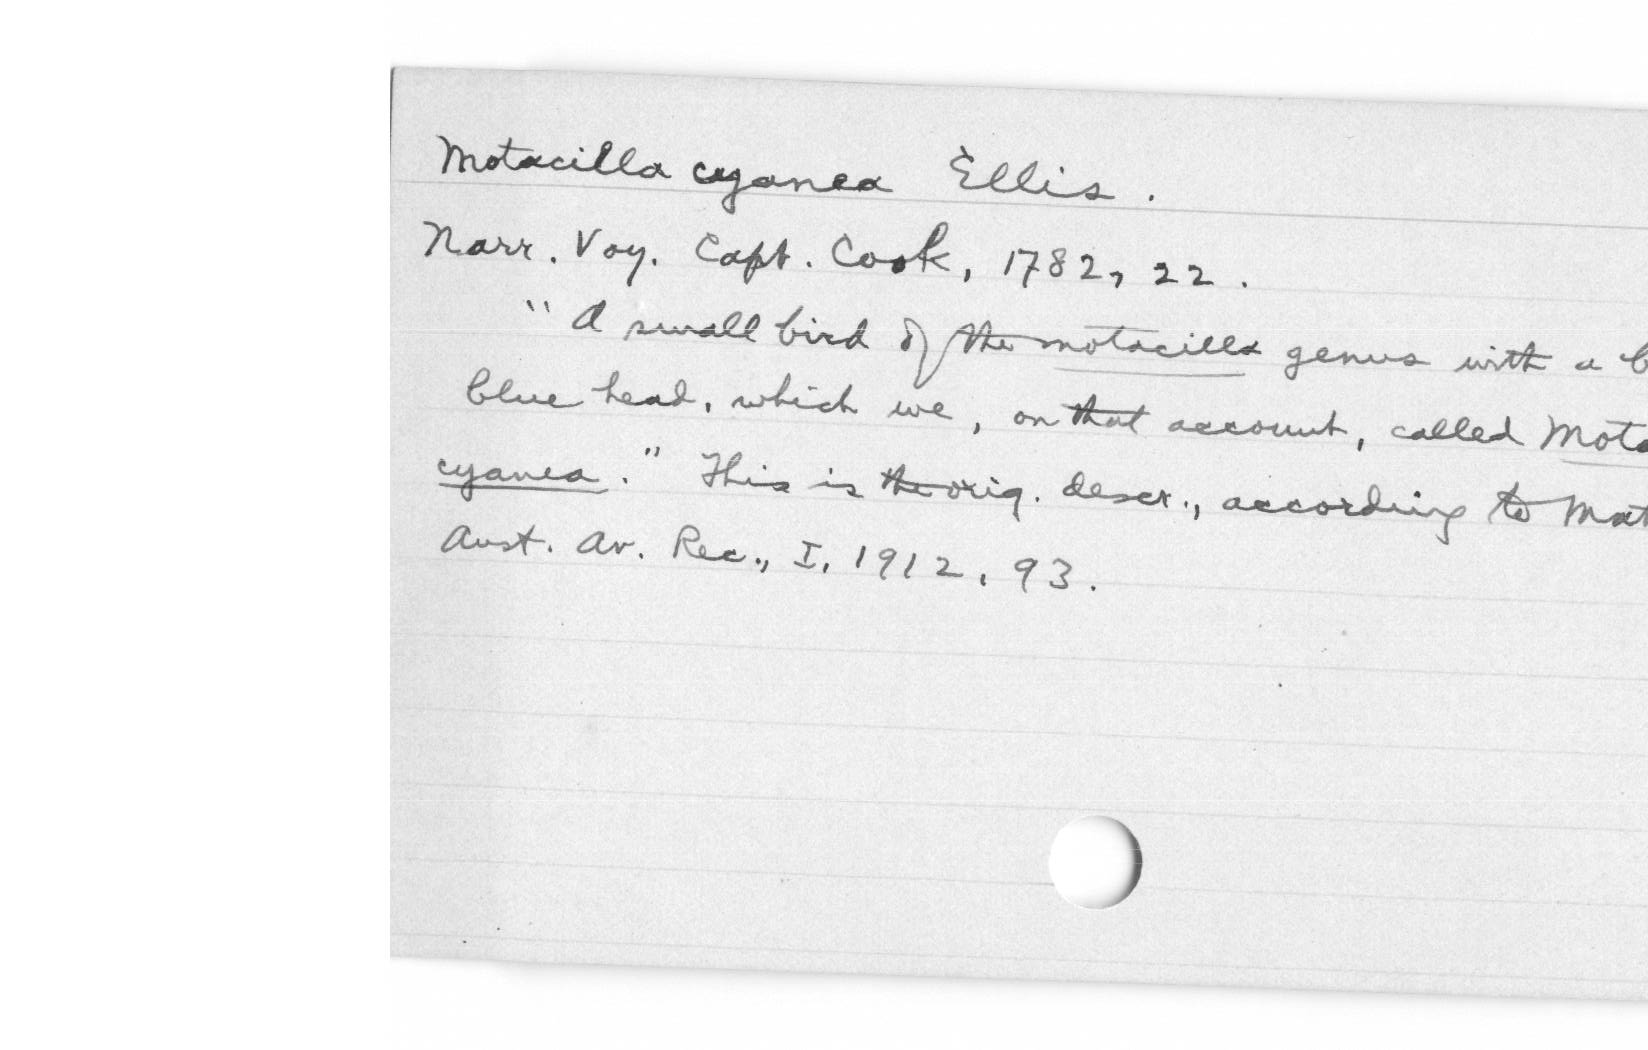 Motacilla cyanea Ellis.
Narr. Voy. Capt. Cook, 1782, 22.
"A small bird of the motacilla genus with a
blue head, which we, on that account, called
cyanea." This is the orig. descr., according to
Aust. Av. Rec., I, 1912, 93.